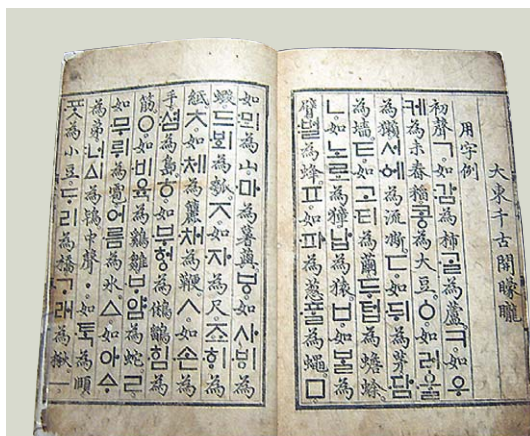 大東千古開朦朧
用字例
初聲ㄱ。如감為柿。ᄀᆞᆯ為蘆。ㅋ。如우
케為未舂稻。콩為大豆。ㆁ。如러울
為獺。서에為流凘。ㄷ。如뒤為茅。담
為墻。ㅌ。如고티為繭。두텁為蟾蜍。
ㄴ。如노로為獐。납為猿。ㅂ。如ᄇᆞᆯ為
臂。벌為蜂。ㅍ。如파為葱。ᄑᆞᆯ為蠅。ㅁ
如뫼為山。마為薯藇。ㅸ。如사ᄫᅵ為
蝦。드ᄫᅴ為瓠。ㅈ。如자為尺。죠ᄒᆡ為
紙。ㅊ。如체為籭。채為鞭。ㅅ。如손為
手。셤為島。ㅎ。如부헝為鵂鶹。힘為
筋。ㅇ。如비육為鷄雛。ᄇᆞ얌為蛇。ㄹ。
如무뤼為雹。어름為氷。ㅿ。如아ᅀᆞ
為弟。너ᅀᅵ為鴇。中聲ㆍ。如ᄐᆞᆨ為頤。
ᄑᆞᆺ為小豆。ᄃᆞ리為橋。ᄀᆞ래為楸。ㅡ